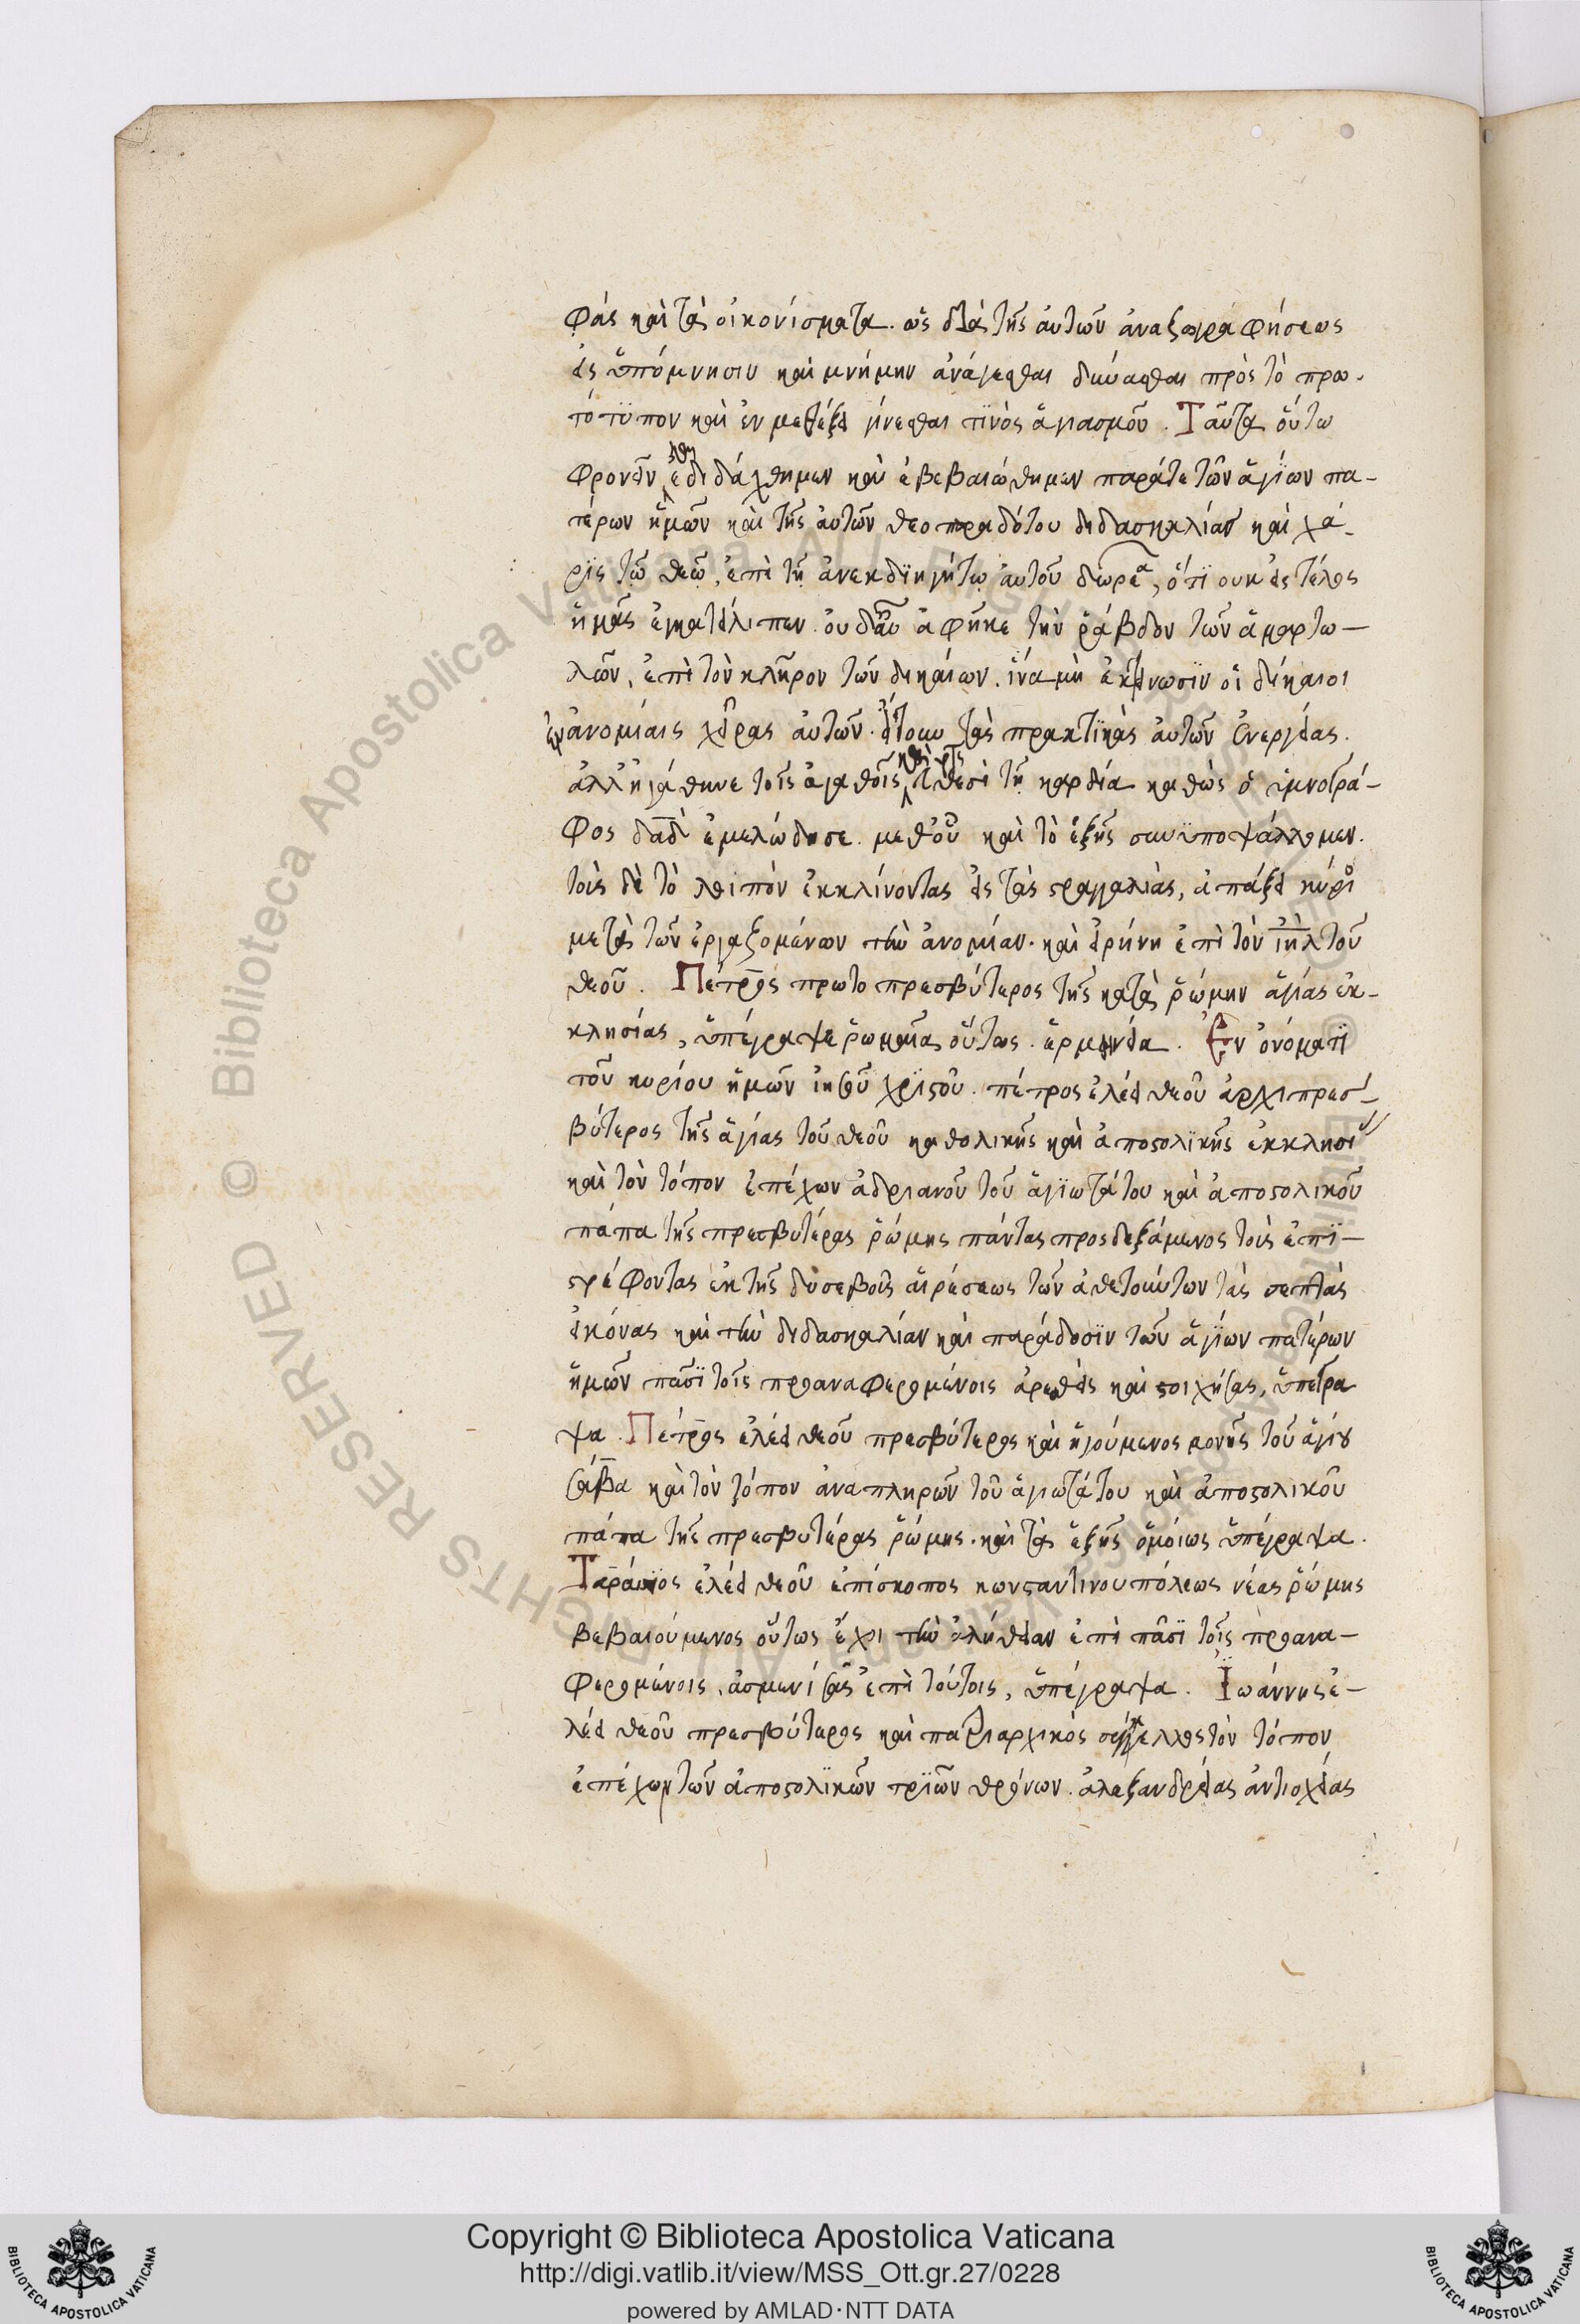 φὰς καὶ τὰ οἰκονίσματα. ὡς διὰ τῆς αὐτῶν ἀναζωγραφήσεως
εἰς ὑπόμνησιν καὶ μνήμην ἀνάγεσθαι δύνασθαι πρὸς τὸ πρω-
τότϋπον καὶ ἐν μεθέξει γίνεσθαι τϊνὸς ἁγιασμοῦ. Ταῦτα οὕτω
φρονεῖν ἐδιδάχθημεν καὶ ἐβεβαιώθημεν παρά τε τῶν ἁγίων πα-
τέρων ἡμῶν καὶ τῆς αὐτῶν θεοπραδότου διδασκαλίας καὶ χά-
ρϊς τῶ θεῶ, ἐπὶ τῆ ἀνεκδϊηγήτω αὐτοῦ δωρεᾶ, ὅτϊ ουκ εἰς τέλος
ἡμᾶς ἐγκατέλιπεν. ἀφῆκε τὴν ῥάβδον τῶν ἁμαρτω-
λῶν, ἐπὶ τὸν κλῆρον τῶν δικαίων. ἵνα μὴ ἐκτείνωσϊν οἱ δίκαιοι
ἐν ἀνομίαις χεῖρας αὐτῶν. ἤτουν τὰς πρακτϊκὰς αὐτῶν ἐνεργείας.
ἀλλ' ἠγάθυνε τοῖς ἀγαθοῖς καὶ τοῖς εὐθέσι τῆ καρδία καθὼς ὁ ὑμνογρά-
φος δαδὶ ἐμελώδησε. μεθ' οὗ καὶ τὸ ἑξῆς συνϋποψάλλομεν.
τοὺς δὲ τὸ λοιπὸν ἐκκλίνοντας εἰς τὰς στραγγαλιὰς, ἀπάξει κύριος
μετὰ τῶν ἐργαζομένων τὴν ἀνομίαν. καὶ εἰρήνη ἐπὶ τὸν ἰηλ τοῦ
θεοῦ. Πέτρος πρωτοπρεσβύτερος τῆς κατὰ ῥώμην ἁγίας ἐκ-
κλησίας, ὑπέγραψε ῥωμαϊα οὕτως. ἑρμηνεία. Ἐν ὀνόματϊ
τοῦ κυρίου ἡμῶν ἰησοῦ χρϊστοῦ. πέτρος ἐλέει θεοῦ ἀρχιπρεσ-
βύτερος τῆς ἁγίας τοῦ θεοῦ καθολικῆς καὶ ἀποστολϊκῆς ἐκκλησί
καὶ τὸν τόπον ἐπέχων ἀδριανοῦ τοῦ ἁγϊωτάτου καὶ ἀποστολικοῦ
πάπα τῆς πρεσβυτέρας ῥώμης πάντας προσδεξάμενος τοὺς ἐπϊ-
στρέφοντας ἐκ τῆς δυσεβοῦς αἱρέσεως τῶν ἀθετούντων τὰς σεπτὰς
εἰκόνας καὶ τὴν διδασκαλίαν καὶ παράδοσϊν τῶν ἁγίων πατέρων
ἡμῶν πᾶσϊ τοῖς προαναφερομένοις ἀρεσθεὶς καὶ στοιχήσας, ὑπέγρα
ψα. Πέτρος ἐλέει θεοῦ πρεσβύτερος καὶ ἡγούμενος μονῆς τοῦ ἁγίου
σάβα καὶ τὸν τόπον ἀναπληρῶν τοῦ ἁγιωτάτου καὶ ἀποστολικοῦ
πάπα τῆς πρεσβυτέρας ῥώμης. καὶ τὰ ἑξῆς ὁμοίως ὑπέγραψα.
Ταράσιος ἐλέει θεοῦ ἐπίσκοπος κωνσταντινουπόλεως νέας ῥώμης
βεβαιούμενος οὕτως ἔχι τὴν ἀλήθειαν ἐπὶ πᾶσϊ τοῖς προανα-
φερομένοις, ἀσμενίσας ἐπὶ τούτοις, ὑπέγραψα. Ἰωάννης ἐ-
λέει θεοῦ πρεσβύτερος καὶ πατριαρχικὸς σύγκελλος τὸν τόπον
ἐπέχων τῶν ἀποστολϊκῶν τρϊῶν θρόνων. ἀλεξανδρείας ἀντιοχείας
Copyright © Biblioteca Apostolica Vaticana
http://digi.vatlib.it/view/MSS_Ott.gr.27/0228
powered by AMLAD·NTT DATA